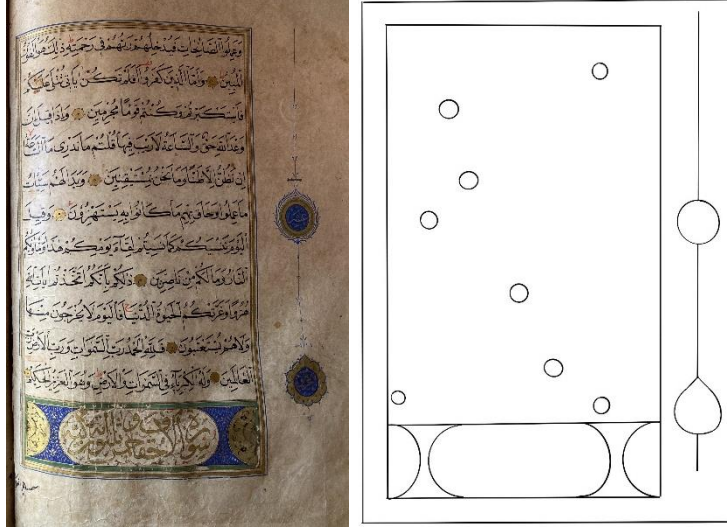 وَعَمِلُوا الصَّالِحَاتِ فَيُدْخِلُهُمْ رَبُّهُمْ فِي رَحْمَتِهِ ذَلِكَ هُوَ الْفَوْزُ
الْمُبِينُ وَأَمَّا الَّذِينَ كَفَرُوا أَفَلَمْ تَكُنْ آيَاتِي تُتْلَى عَلَيْكُمْ
فَاسْتَكْبَرْتُمْ وَكُنْتُمْ قَوْمًا مُجْرِمِينَ وَإِذَا قِيلَ إِنَّ
وَعْدَ اللَّهِ حَقٌّ وَالسَّاعَةُ لَا رَيْبَ فِيهَا قُلْتُمْ مَا نَدْرِي مَا السَّاعَةُ
إِنْ نَظُنُّ إِلَّا ظَنًّا وَمَا نَحْنُ بِمُسْتَيْقِنِينَ وَبَدَا لَهُمْ سَيِّئَاتُ
مَا عَمِلُوا وَحَاقَ بِهِمْ مَا كَانُوا بِهِ يَسْتَهْزِؤُنَ وَقِيلَ
الْيَوْمَ نَنْسَيكُمْ كَمَا نَسِيتُمْ لِقَاءَ يَوْمِكُمْ هَذَا وَمَأْوَيكُمُ
النَّارُ وَمَا لَكُمْ مِنْ نَاصِرِينَ ذَلِكُمْ بِأَنَّكُمُ اتَّخَذْتُمْ آيَاتِ اللَّهِ
هُزُوًا وَغَرَّتْكُمُ الْحَيَوةُ الدُّنْيَا فَالْيَوْمَ لَا يُخْرَجُونَ مِنْهَا
وَلَا هُمْ يُسْتَعْتَبُونَ فَلِلَّهِ الْحَمْدُ رَبِّ السَّمَوَاتِ وَرَبِّ الْأَرْضِ رَبِّ
الْعَالَمِينَ وَلَهُ الْكِبْرِيَاءُ فِي السَّمَوَاتِ وَالْأَرْضِ وَهُوَ الْعَزِيزُ الْحَكِيمُ
سورة الاحقاف